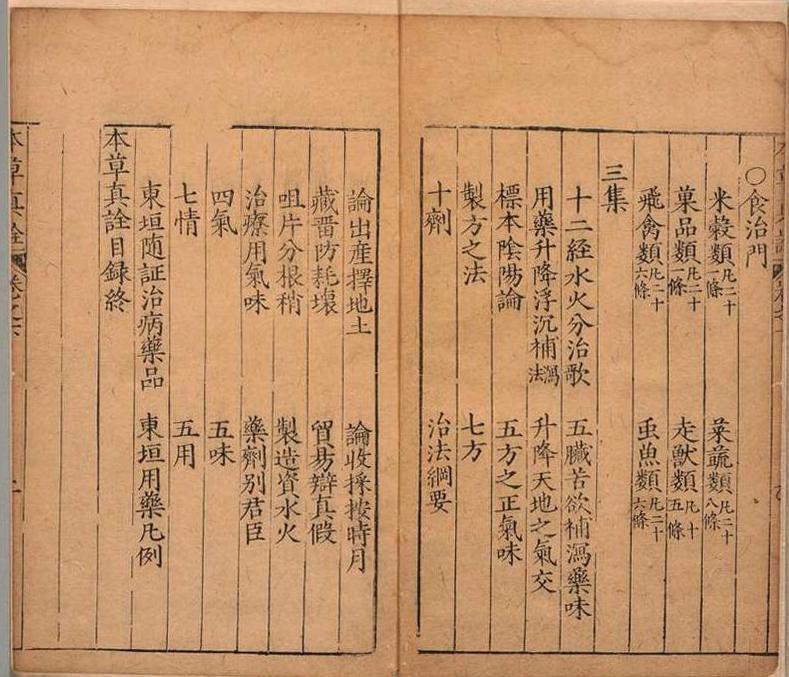 〇食治門
米穀類凡二十一條　菜蔬類凡二十八條
菓品類凡二十一條　走獸類凡十五條
飛禽類凡二十六條　虫魚類凡二十六條
三集
十二経水火分治歌　五臟苦欲補瀉藥味
用藥升降浮沉補瀉法　升降天地之氣交
標本陰陽論　五方之正氣味
製方之法　七方
十劑　治法綱要
論出產擇地土　論收採按時月
藏畨防耗壞　貿易辯真假
咀片分根稍　製造資水火
治療用氣味　藥劑别君臣
四氣　五味
七情　五用
東垣随証治病藥品　東垣用藥凡例
本草真詮目録終
本草真詮